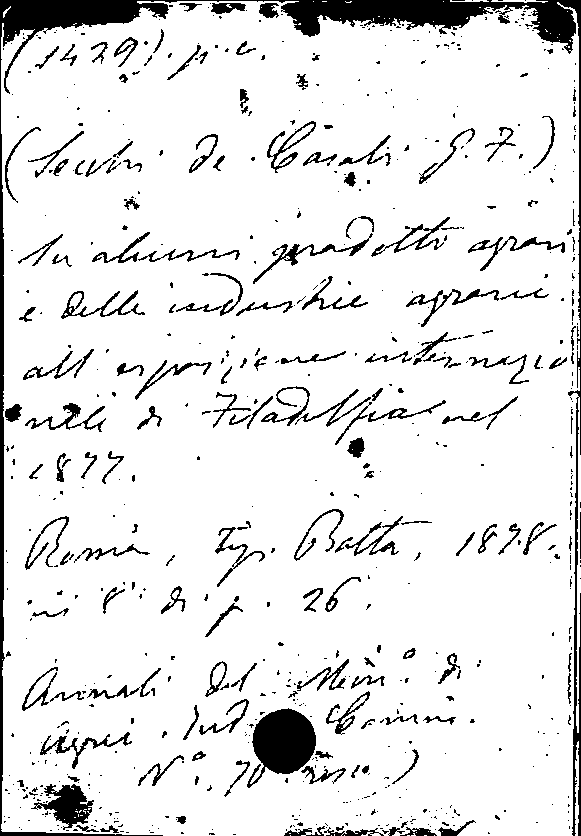 (1429). p. c.
(Secchi de Casali G. F.)
Su alcuni prodotti agrari
e delle industrie agrarie
all'esposizione internazio
nale di Filadelfia nel
1877.
Roma, tip. Botta, 1878.
in 8° di p. 26.
Annali del Min.° di
Agri. Ind. Comm.
N°. 70